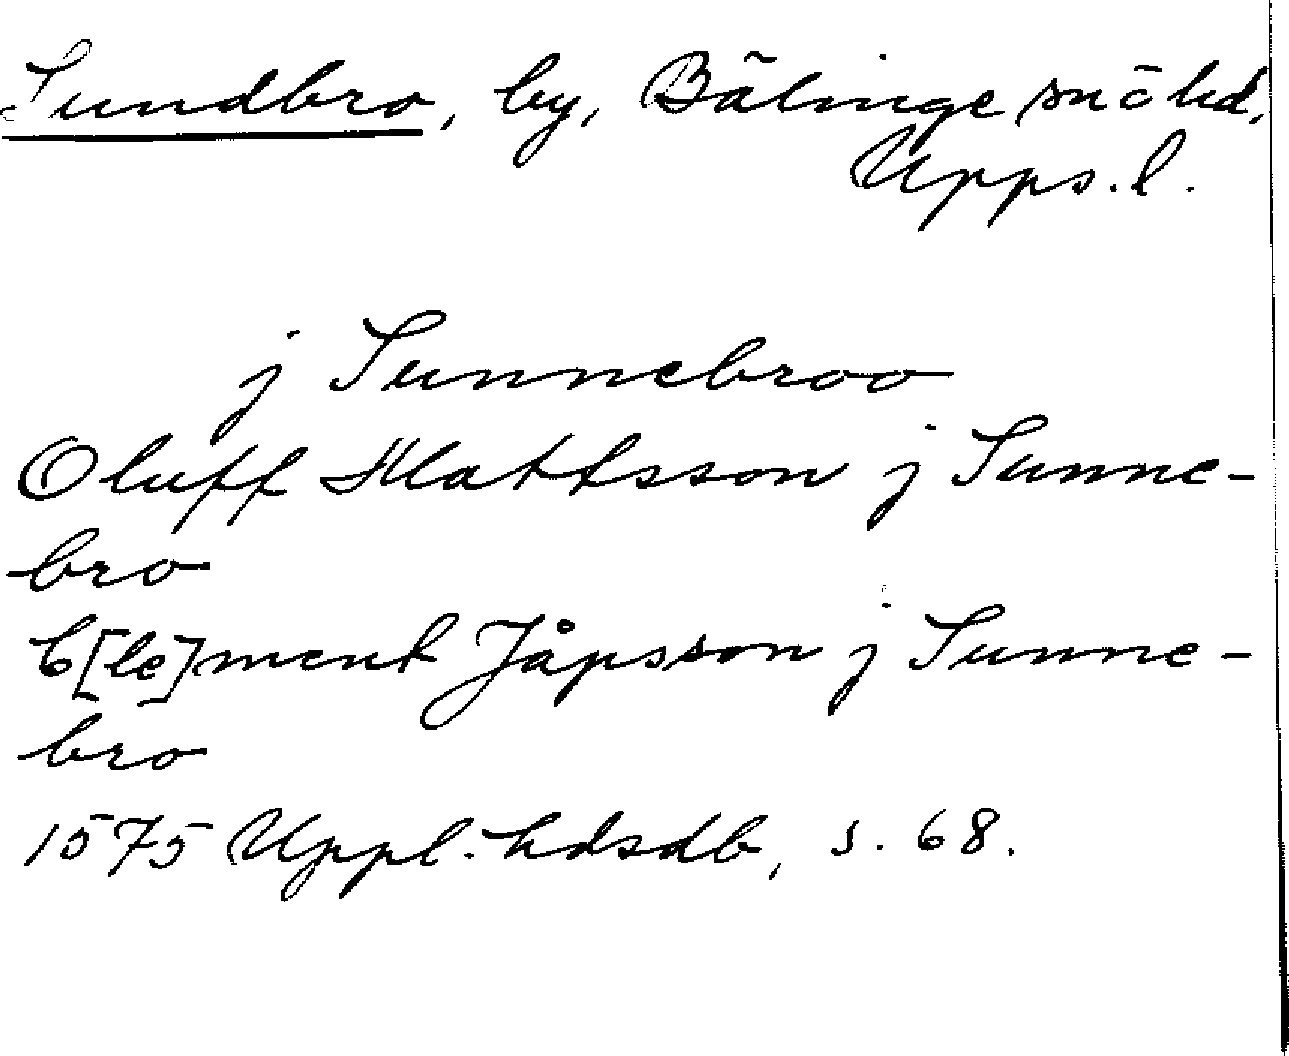 Sundbro, by, Bälinge sn ö hd,
Upps. l.
j Sunnebroo
Oluff Mattsson j Sunne-
bro
C[le]ment Jåpsson j Sunne-
bro
1575 Uppl. hdsdb, s. 68.